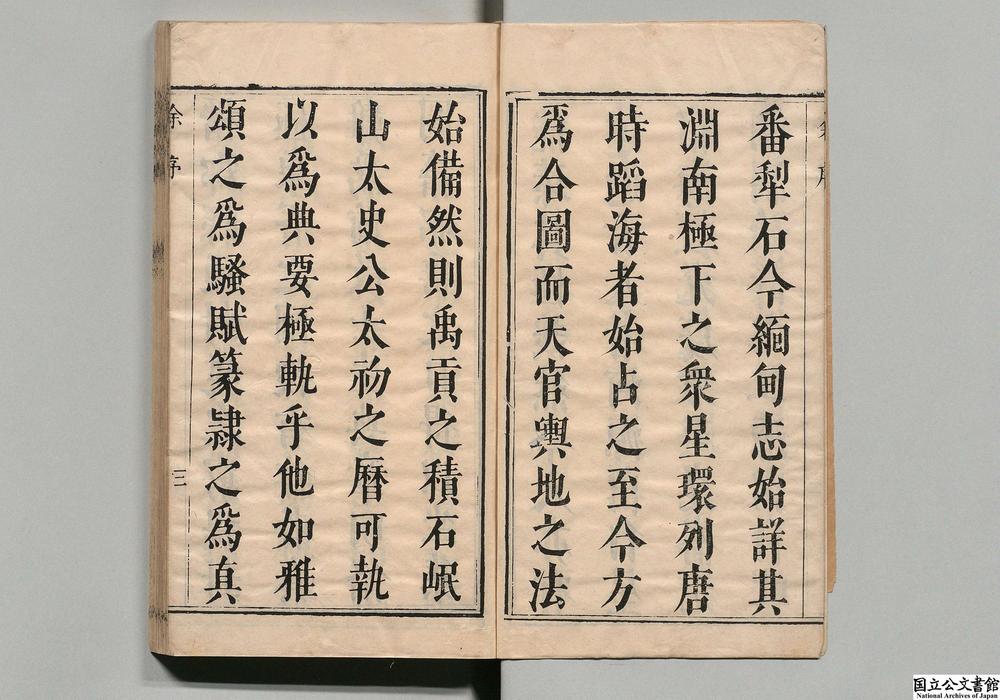 番犁石今緬甸志始詳其
淵南極下之衆星環列唐
時蹈海者始占之至今方
爲合圖而天官輿地之法
始備然則禹貢之積石岷
山太史公太初之曆可執
以爲典要極軌乎他如雅
頌之爲騷賦篆隷之爲真
徐序
三
国立公文書館
National Archives of Japan